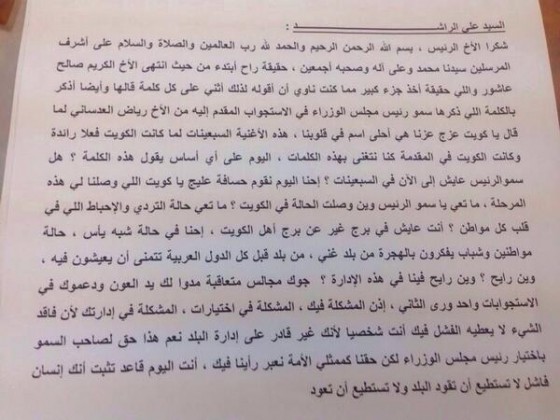 السيد علي الراشـــــــــــــد :
شكرا الأخ الرئيس ، بسم الله الرحمن الرحيم والحمد لله رب العالمين والصلاة والسلام على أشرف
المرسلين سيدنا محمد وعلى آله وصحبه أجمعين ، حقيقة راح أبتدء من حيث انتهى الأخ الكريم صالح
عاشور واللي حقيقة أخذ جزء كبير مما كنت ناوي أن أقوله لذلك أثني على كل كلمة قالها وأيضا أذكر
بالكلمة اللي ذكرها سمو رئيس مجلس الوزراء في الاستجواب المقدم إليه من الأخ رياض العدساني لما
قال يا كويت عزج عزنا هي أحلى اسم في قلوبنا ، هذه الأغنية السبعينات لما كانت الكويت فعلا رائدة
وكانت الكويت في المقدمة كنا نتغنى بهذه الكلمات ، اليوم على أي أساس يقول هذه الكلمة ؟ هل
سموالرئيس عايش إلى الآن في السبعينات ؟ إحنا اليوم نقوم حسافة عليج يا كويت اللي وصلنا لي هذه
المرحلة ، ما تعي يا سمو الرئيس وين وصلت الحالة في الكويت ؟ ما تعي حالة التردي والإحباط اللي في
قلب كل مواطن ؟ أنت عايش في برج غير عن برج أهل الكويت ، إحنا في حالة شبه يأس ، حالة
مواطنين وشباب يفكرون بالهجرة من بلد غني ، من بلد قبل كل الدول العربية تتمنى أن يعيشون فيه ،
وين رايح ؟ وين رايح فينا في هذه الإدارة ؟ جوك مجالس متعاقبة مدوا لك يد العون ودعموك في
الاستجوابات واحد ورى الثاني ، إذن المشكلة فيك ، المشكلة في اختيارات ، المشكلة في إدارتك لأن فاقد
الشيء لا يعطيه الفشل فيك أنت شخصيا لأنك غير قادر على إدارة البلد نعم هذا حق لصاحب السمو
باختيار رئيس مجلس الوزراء لكن حقنا كممثلي الأمة نعبر رأينا فيك ، أنت اليوم قاعد تثبت أنك إنسان
فاشل لا تستطيع أن تقود البلد ولا تستطيع أن تعود